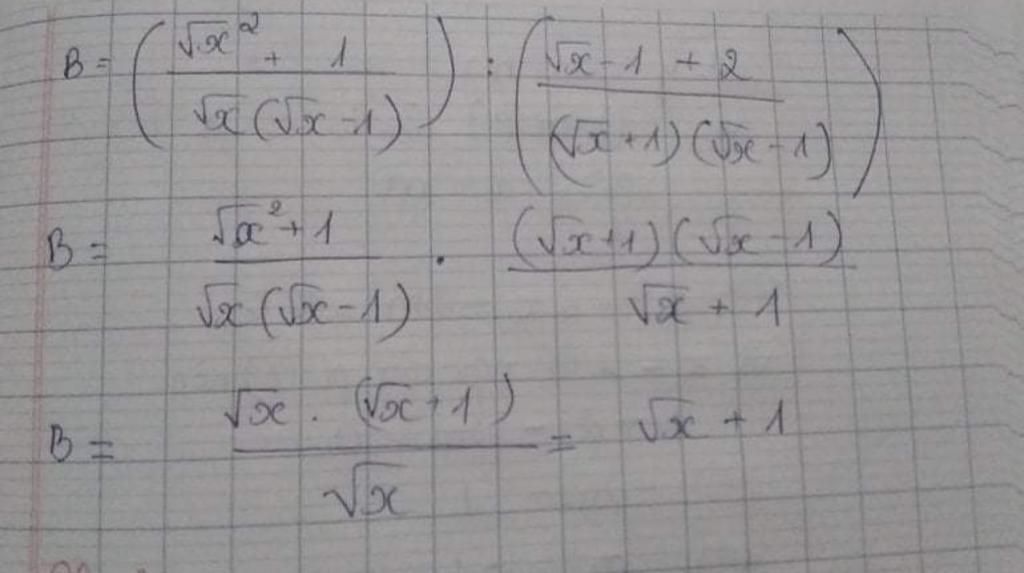 B = ( (√x² + 1) / (√x (√x - 1)) ) : ( (√x - 1 + 2) / ((√x + 1) (√x - 1)) )
B = (√x² + 1) / (√x (√x - 1)) . ((√x + 1) (√x - 1)) / (√x + 1)
B = (√x . (√x + 1)) / √x = √x + 1